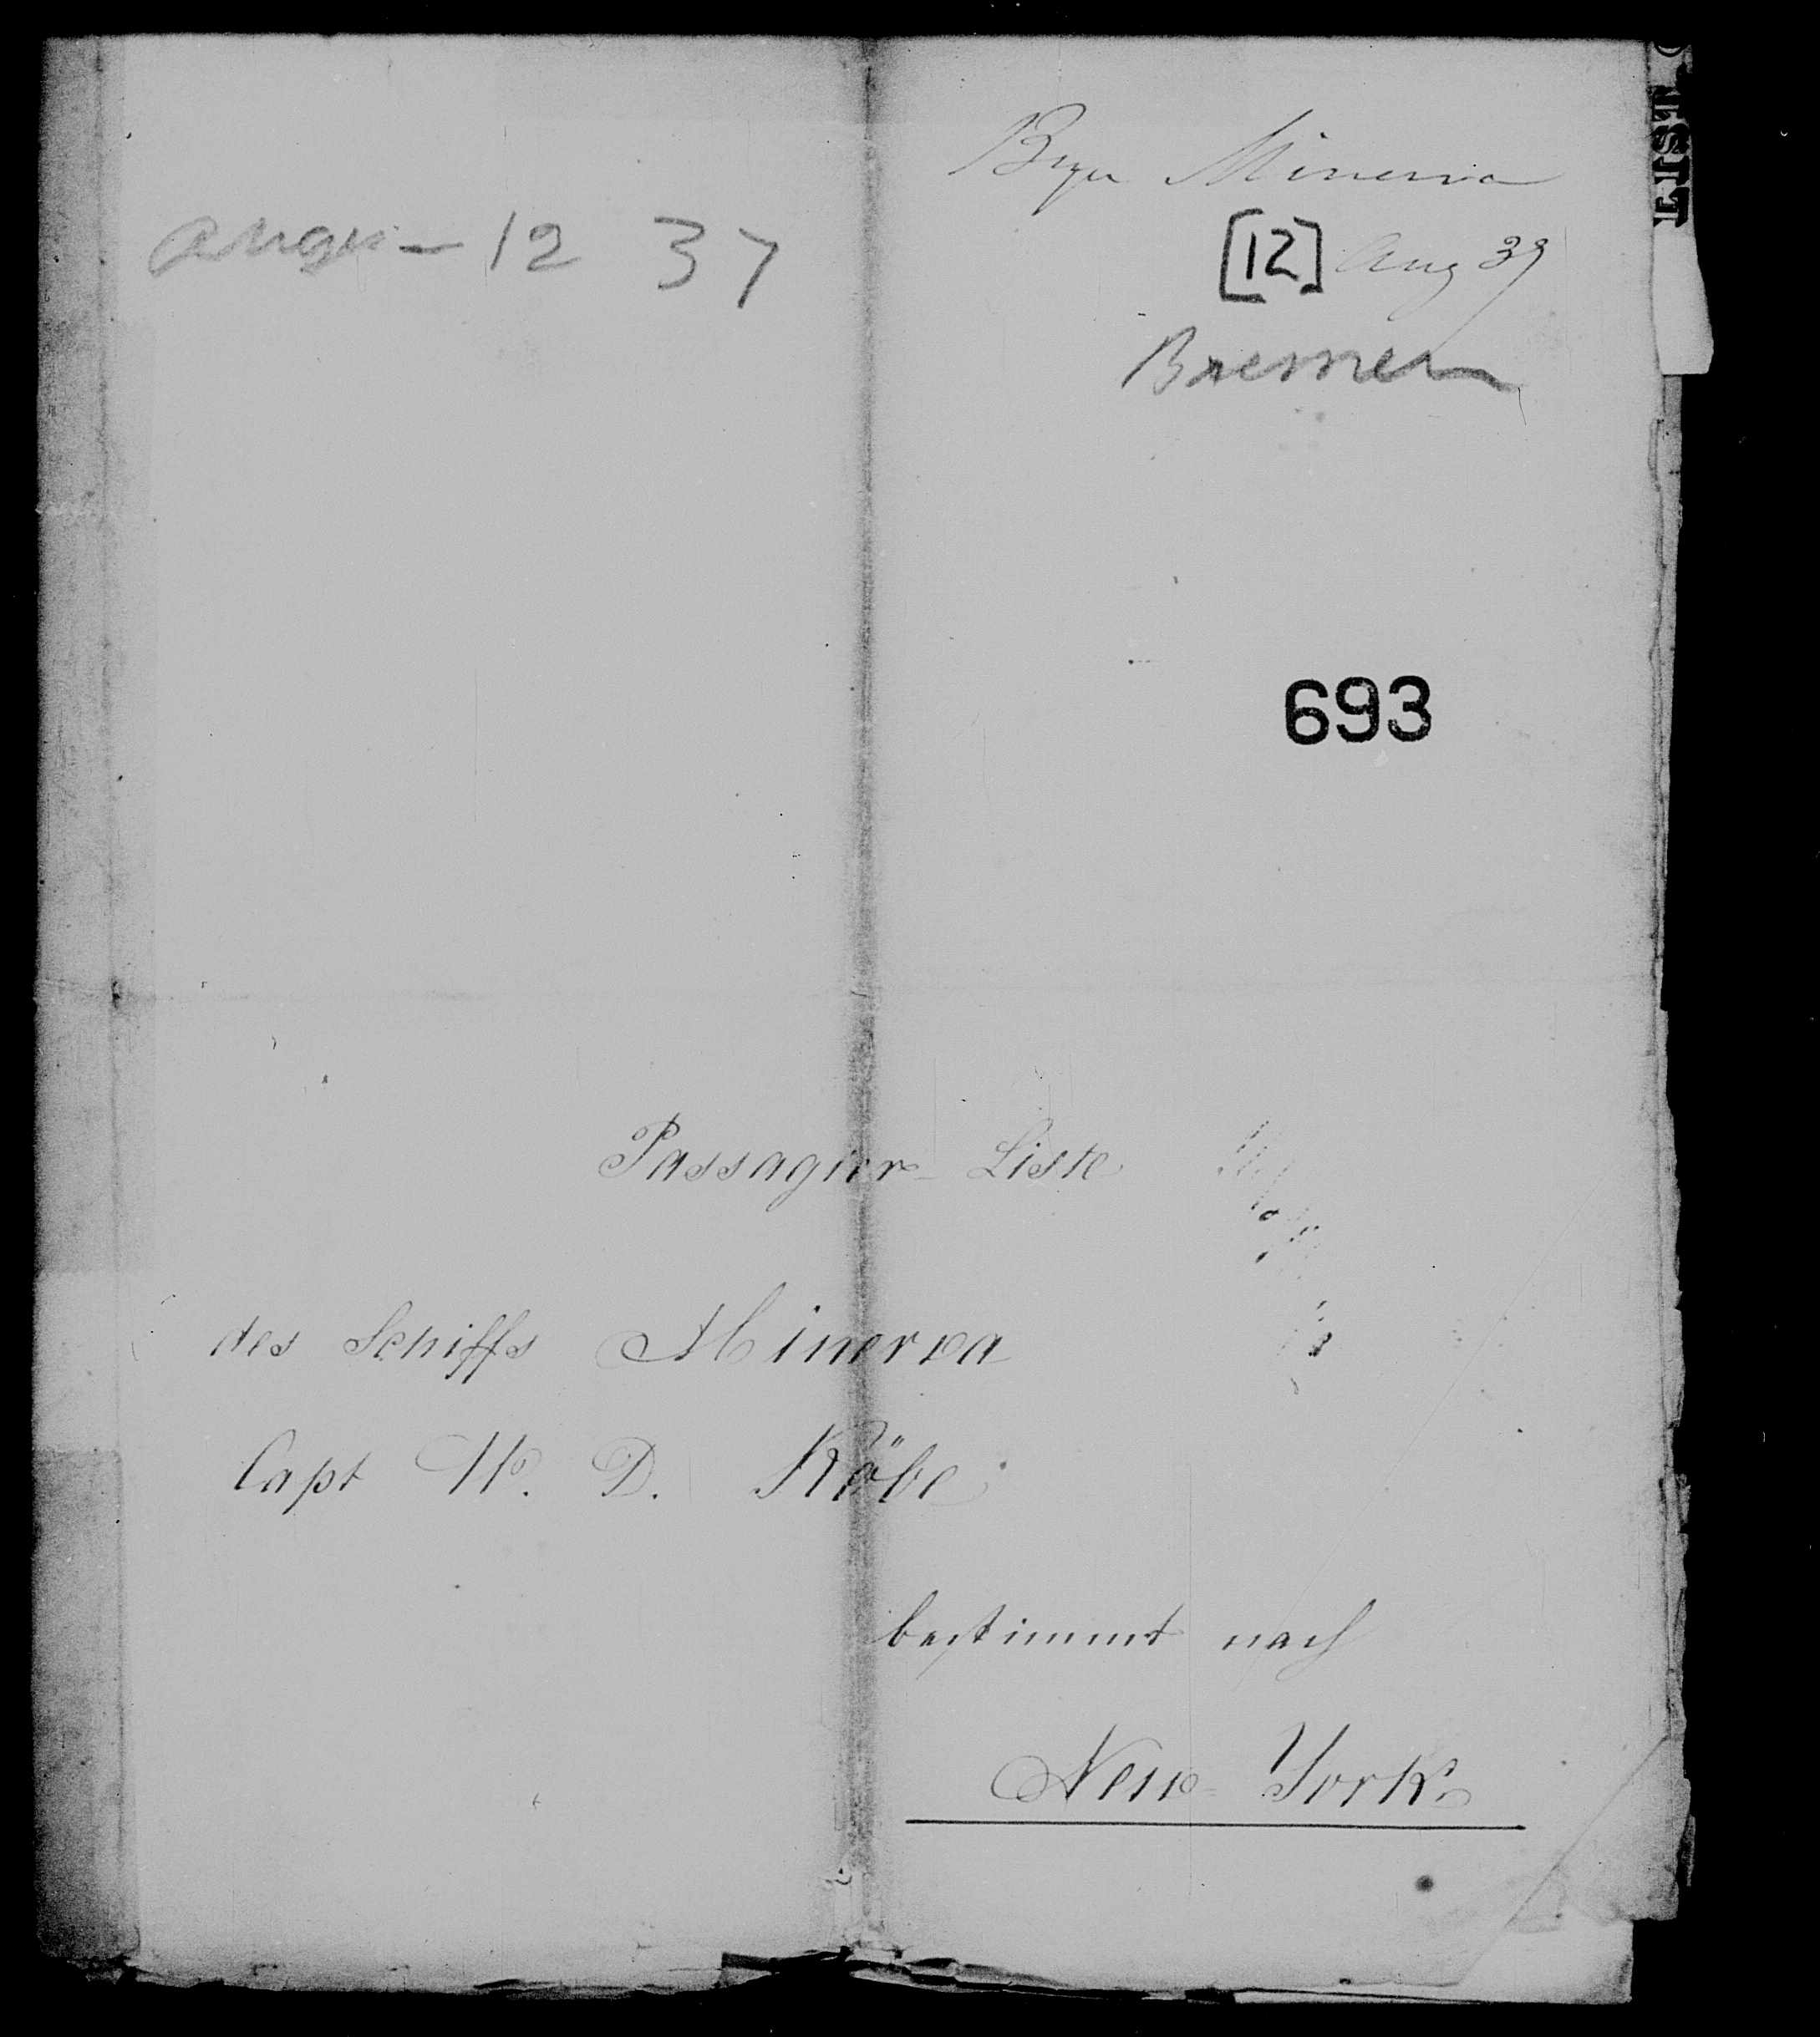 Minerva
[12] Aug 37
Bremen
Augu– 12 37
693
LIST
Passagier-Liste
des Schiffs Minerva
Capt W. D. Köbe
bestimmt nach
New-York